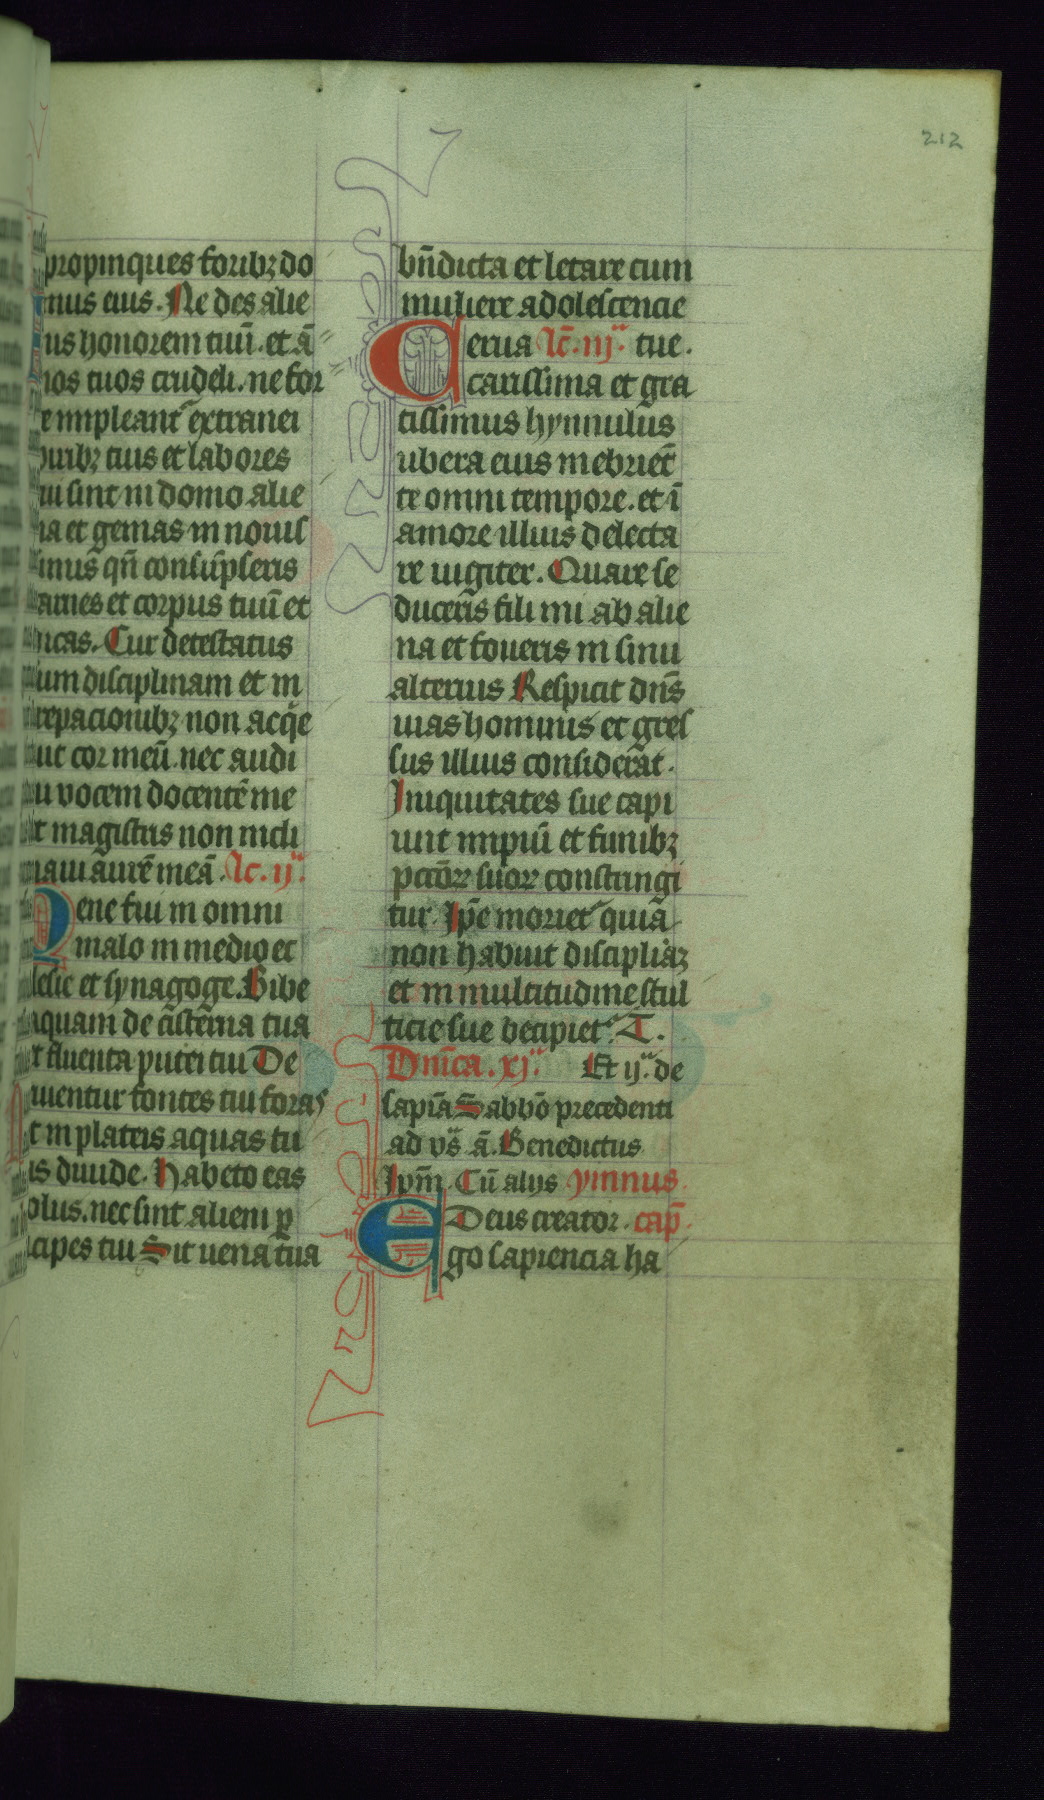 212
propinques foribꝫ do
mus eius. Ne des alie
us honorem tuū. et ā
nos tuos crudeli. ne for
te impleant᷑ extranei
uiribꝫ tuis et labores
tui sint in domo alie
na et gemas in nouis
simus qn̄ consūpseris
carnes et corpus tuū et
dicas. Cur detestatus
sum disciplinam et in
crepacionibꝫ non acq̇e
uit cor meū. nec audi
ui vocem docentē me
et magistris non incli
naui aurē meā. lc̄. ij.
Pene fui in omni
malo in medio ec
clesie et synagoge. Bibe
aquam de cisterna tua
et fluenta putei tui De
riuentur fontes tui foras
et in plateis aquas tu
as diuide. Habeto eas
solus. nec sint alieni ꝑ
ticipes tui Sit uena tua
bn̄dicta et letare cum
muliere adolescencie
Cerua lc̄. iij. tue.
carissima et gra
tissimus hynnulus
ubera eius inebriēt
te omni tempore. et ī
amore illius delecta
re iugiter. Quare se
duceris fili mi ab alie
na et foueris in sinu
alterius Respicit dn̄s
uias hominis et gres
sus illius considerat.
Iniquitates sue capi
unt impiū et funibꝫ
pctōꝝ suoꝝ constringi
tur. Ip̄e moriet᷑ quia
non habuit discipliāꝫ
et in multitudine stul
ticie sue decipiet᷑. T.
Dn̄ica. xj. Et ij. de
sapīa Sabbō precedenti
ad vs̄ ā. Benedictus
Ipm̄. Cū alijs ymnus.
Deus creator. cap̄.
Ego sapiencia ha